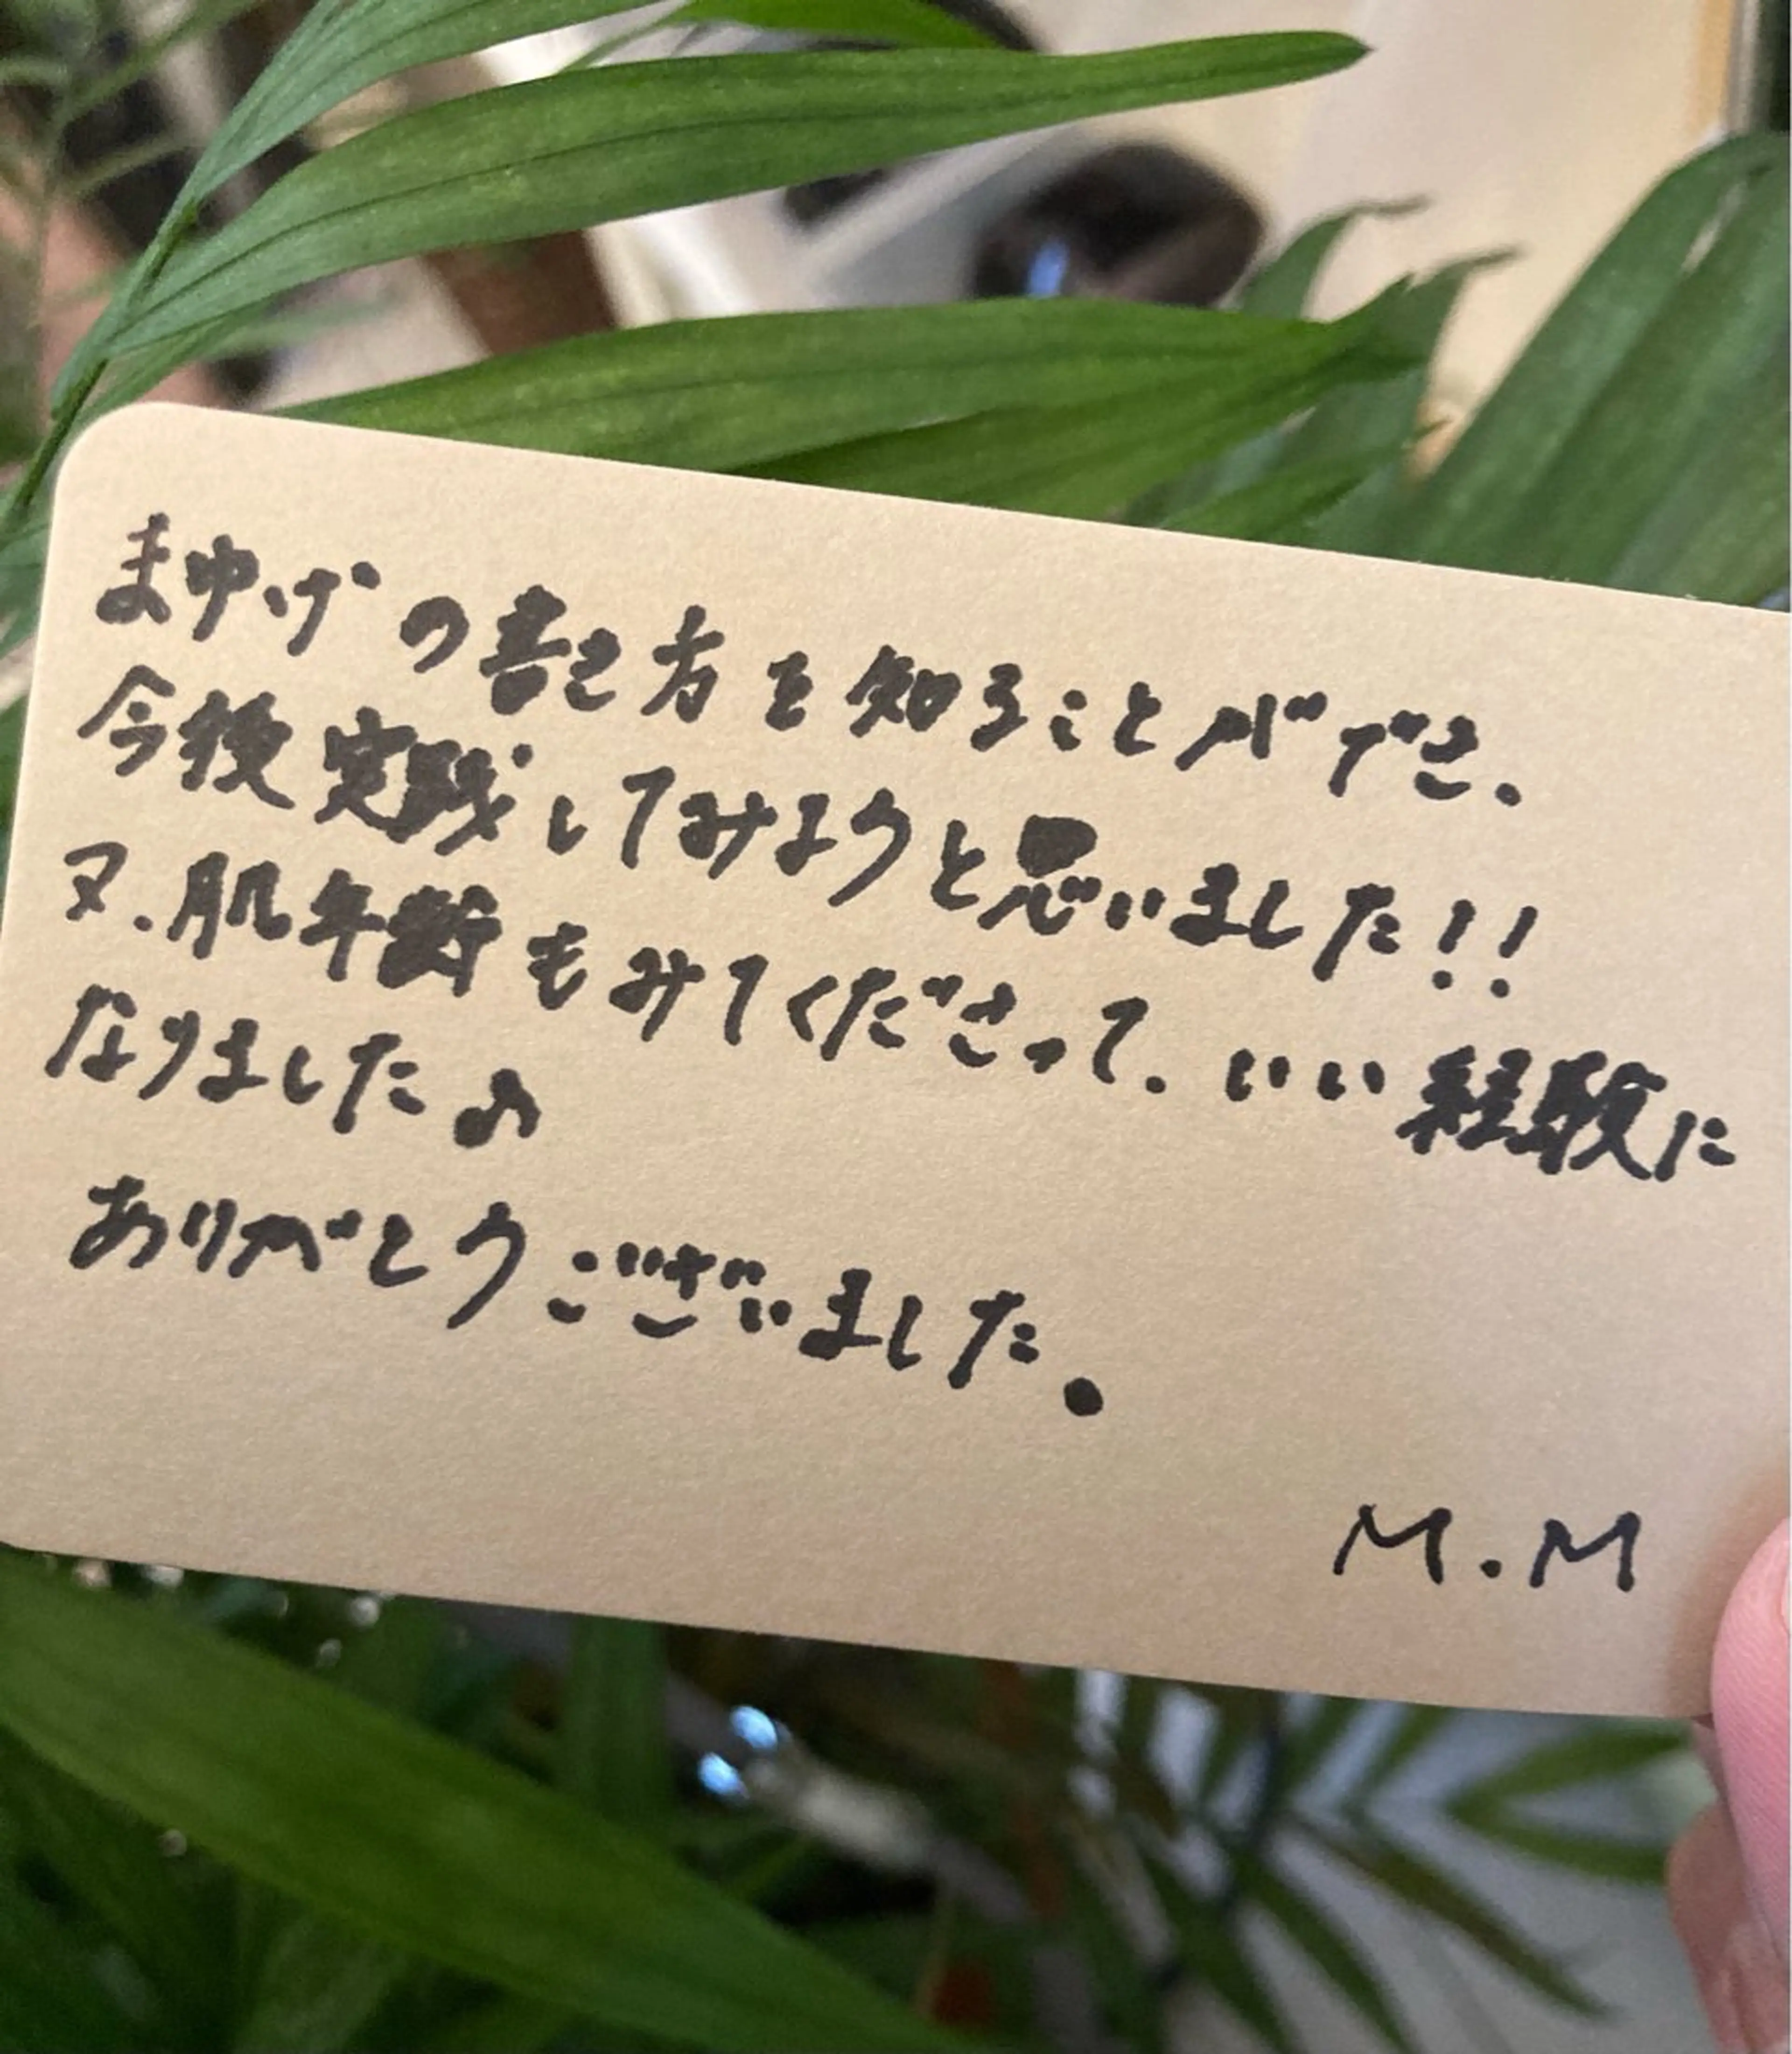 まゆげの書き方を知ることができ、
今後実践してみようと思いました!!
又、肌年齢もみてくださって、いい経験に
なりました♪
ありがとうございました。
M.M